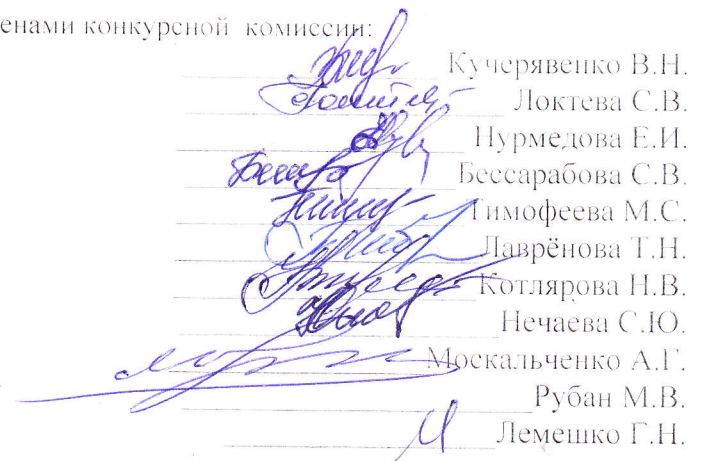 енами конкурсной комиссии:
Кучерявенко В.Н.
Локтева С.В.
Нурмедова Е.И.
Бессарабова С.В.
Тимофеева М.С.
Лаврёнова Т.Н.
Котлярова Н.В.
Нечаева С.Ю.
Москальченко А.Г.
Рубан М.В.
Лемешко Г.Н.